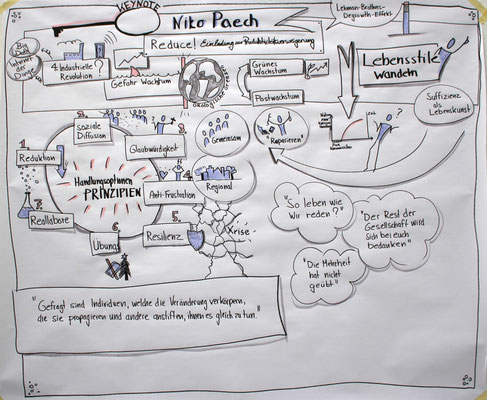 KEYNOTE
Niko Paech
Reduce! Einladung zur Produktivitätsverweigerung
Lehman-Brothers-
Degrowth-Effekt
Big
Data
Internet der
Dinge
4. Industrielle
Revolution?
Gefahr Wachstum
ökologische Grenzen
Grünes
Wachstum
Postwachstum
Lebensstile
wandeln
Suffizienz
als
Lebenskunst
Zeit
?
Handlungsoptionen
PRINZIPIEN
1.
Reduktion
2.
Soziale
Diffusion
3.
Glaubwürdigkeit
4.
Anti-Frustration
5.
Resilienz
6.
Übung
7.
Reallabore
Gemeinsam
"Reparieren"
Regional
Krise
"So leben wie
wir reden?"
"Der Rest der
Gesellschaft wird
sich bei euch
bedanken"
"Die Mehrheit
hat nicht
geübt"
"Gefragt sind Individuen, welche die Veränderung verkörpern,
die sie propagieren und andere anstiften, ihnen es gleich zu tun."